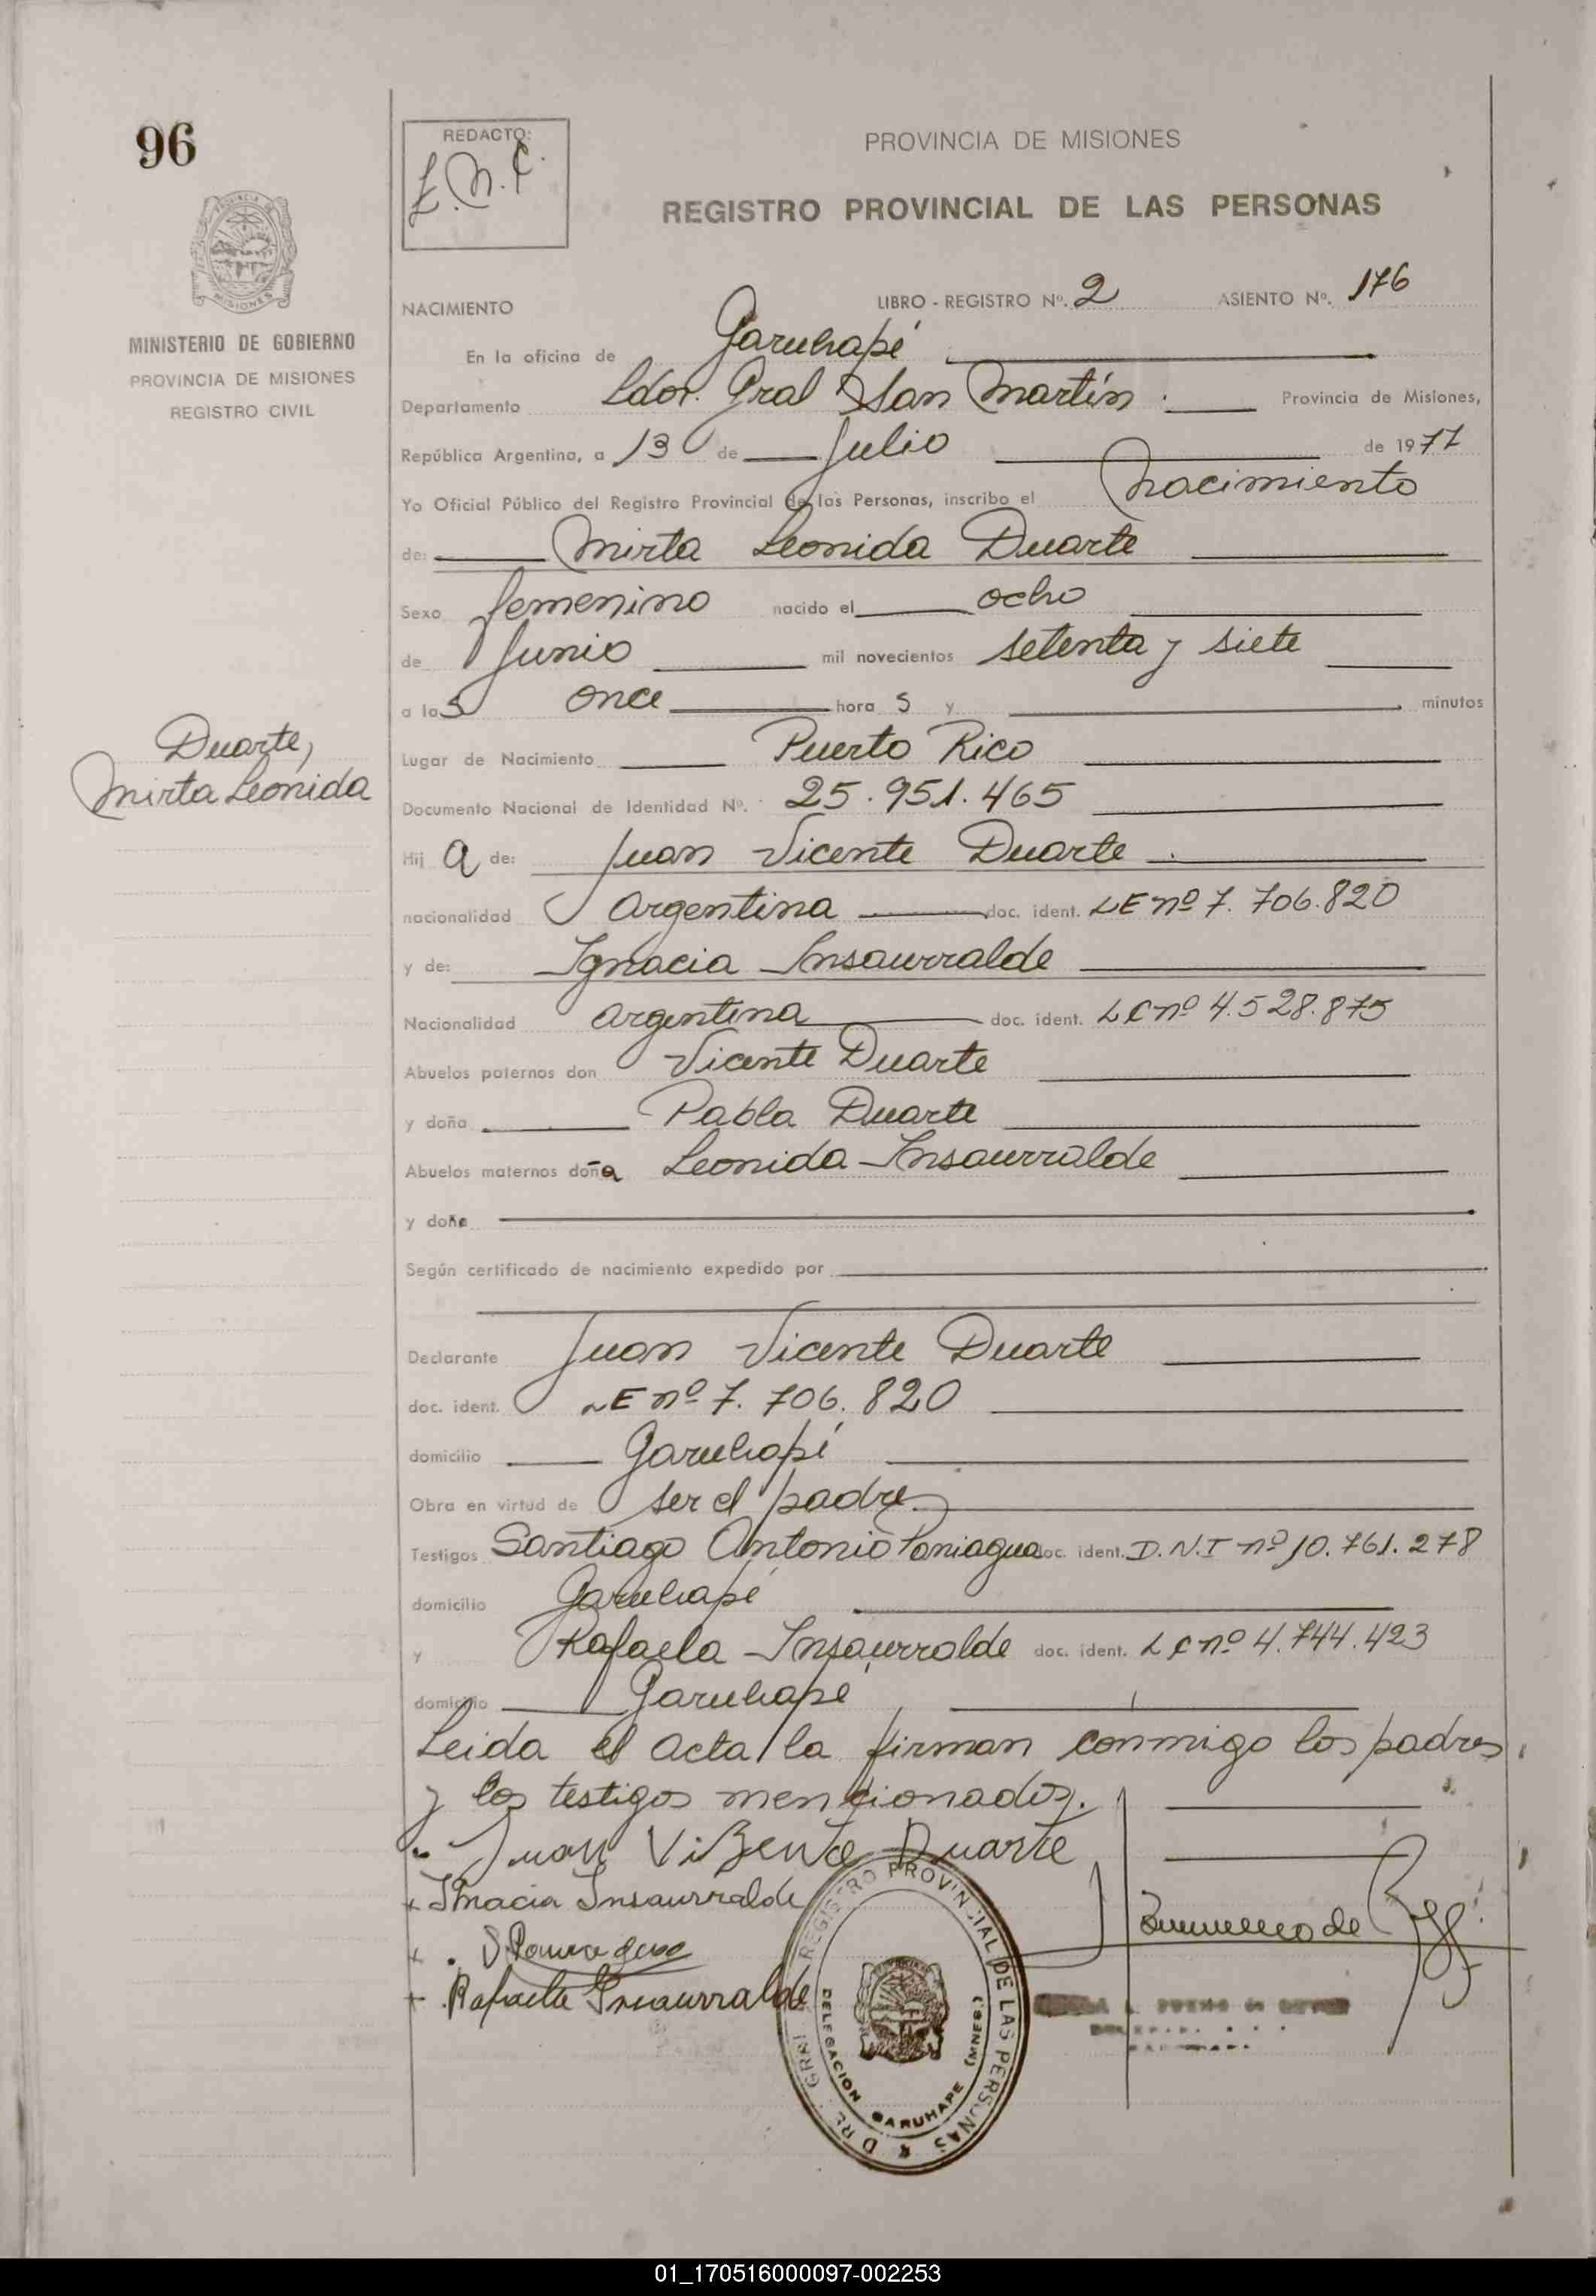 96
REDACTO:
PROVINCIA DE MISIONES
REGISTRO PROVINCIAL DE LAS PERSONAS
MINISTERIO DE GOBIERNO
PROVINCIA DE MISIONES
REGISTRO CIVIL
NACIMIENTO LIBRO - REGISTRO Nº. 2 ASIENTO Nº. 176
En la oficina de Garuhapé
Departamento Ldor. Gral San Martín. Provincia de Misiones,
República Argentina, a 13 de Julio de 1977
Yo Oficial Público del Registro Provincial de las Personas, inscribo el nacimiento
de: Mirta Leonida Duarte
Sexo femenino nacido el ocho
de Junio mil novecientos setenta y siete
a las once hora s y minutos
Duarte,
Mirta Leonida
Lugar de Nacimiento Puerto Rico
Documento Nacional de Identidad Nº. 25.951.465
Hij a de: Juan Vicente Duarte
nacionalidad Argentina doc. ident. LE nº 7.706.820
y de: Ignacia Insaurralde
Nacionalidad argentina doc. ident. LC nº 4.528.875
Abuelos paternos don Vicente Duarte
y doña Pabla Duarte
Abuelos maternos doña Leonida Insaurralde
y doña
Según certificado de nacimiento expedido por
Declarante Juan Vicente Duarte
doc. ident. LE nº 7.706.820
domicilio Garuhapé
Obra en virtud de ser el padre
Testigos Santiago Antonio Paniagua doc. ident. D.N.I nº 10.761.278
domicilio Garuhapé
y Rafaela Insaurralde doc. ident. LC nº 4.744.423
domicilio Garuhapé
Leida el acta la firman conmigo los padres
y los testigos mencionados.
Juan Vibente Duarte
Ignacia Insaurralde
Rafaela Insaurralde
REGISTRO PROVINCIAL DE LAS PERSONAS
DELEGACION GARUHAPE (MNES)
01_170516000097-002253